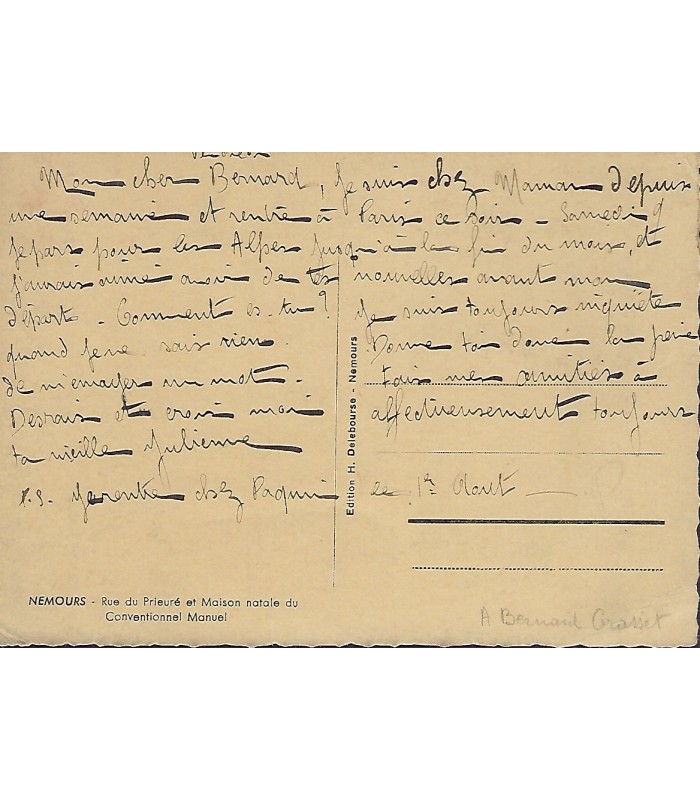 Vendredi
Mon cher Bernard, je suis chez Maman depuis
une semaine et rentre à Paris ce soir - Samedi 9
je pars pour les Alpes jusqu'à la fin du mois, et
j'aurais aimé avoir de tes nouvelles avant mon
départ - Comment es-tu ? Je suis toujours inquiète
quand je ne sais rien. Donne toi donc la peine
de m'envoyer un mot - fais mes amitiés à
Desrais et crois moi affectueusement toujours
ta vieille Julienne
P.S. je rentre chez Paquin le 1er Aout -
Edition H. Delebourse - Nemours
NEMOURS - Rue du Prieuré et Maison natale du
Conventionnel Manuel
A Bernard Grasset